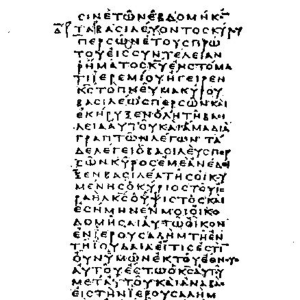 ΣΙΝΕΤΩΝΕΒΔΟΜΗΚΟ
ΤΑΒΑΣΙΛΕΥΟΝΤΟΣΚΥΡΟΥ
ΠΕΡΣΩΝΕΤΟΥΣΠΡΩ
ΤΟΥΕΙΣΣΥΝΤΕΛΕΙΑΝ
ΡΗΜΑΤΟΣΚΥΕΝΣΤΟΜΑ
ΤΙΙΕΡΕΜΙΟΥΗΓΕΙΡΕΝ
ΚΣΤΟΠΝΕΥΜΑΚΥΡΟΥ
ΒΑΣΙΛΕΩΣΠΕΡΣΩΝΚΑΙ
ΕΚΗΡΥΞΕΝΟΛΗΤΗΒΑΣΙ
ΛΕΙΑΑΥΤΟΥΚΑΙΑΜΑΔΙΑ
ΓΡΑΠΤΩΝΛΕΓΩΝΤΑ
ΔΕΛΕΓΕΙΟΒΑΣΙΛΕΥΣΠΕΡ
ΣΩΝΚΥΡΟΣΕΜΕΑΝΕΔΕΙ
ΞΕΝΒΑΣΙΛΕΑΤΗΣΟΙΚΟΥ
ΜΕΝΗΣΟΚΥΡΙΟΣΤΟΥΙΣ
ΡΑΗΛΚΣΟΥΨΙΣΤΟΣΚΑΙ
ΕΣΗΜΗΝΕΝΜΟΙΟΙΚΟ
ΔΟΜΗΣΑΙΑΥΤΩΟΙΚΟΝ
ΕΝΙΕΡΟΥΣΑΛΗΜΤΗΕΝ
ΤΗΙΟΥΔΑΙΑΕΙΤΙΣΕΣΤΙ
ΟΥΝΥΜΩΝΕΚΤΟΥΕΘΝΟΥΣ
ΑΥΤΟΥΕΣΤΩΟΚΣΑΥΤΟΥ
ΜΕΤΑΥΤΟΥΚΑΙΑΝΑΒΑΣ
ΕΙΣΤΗΝΙΕΡΟΥΣΑΛΗΜ